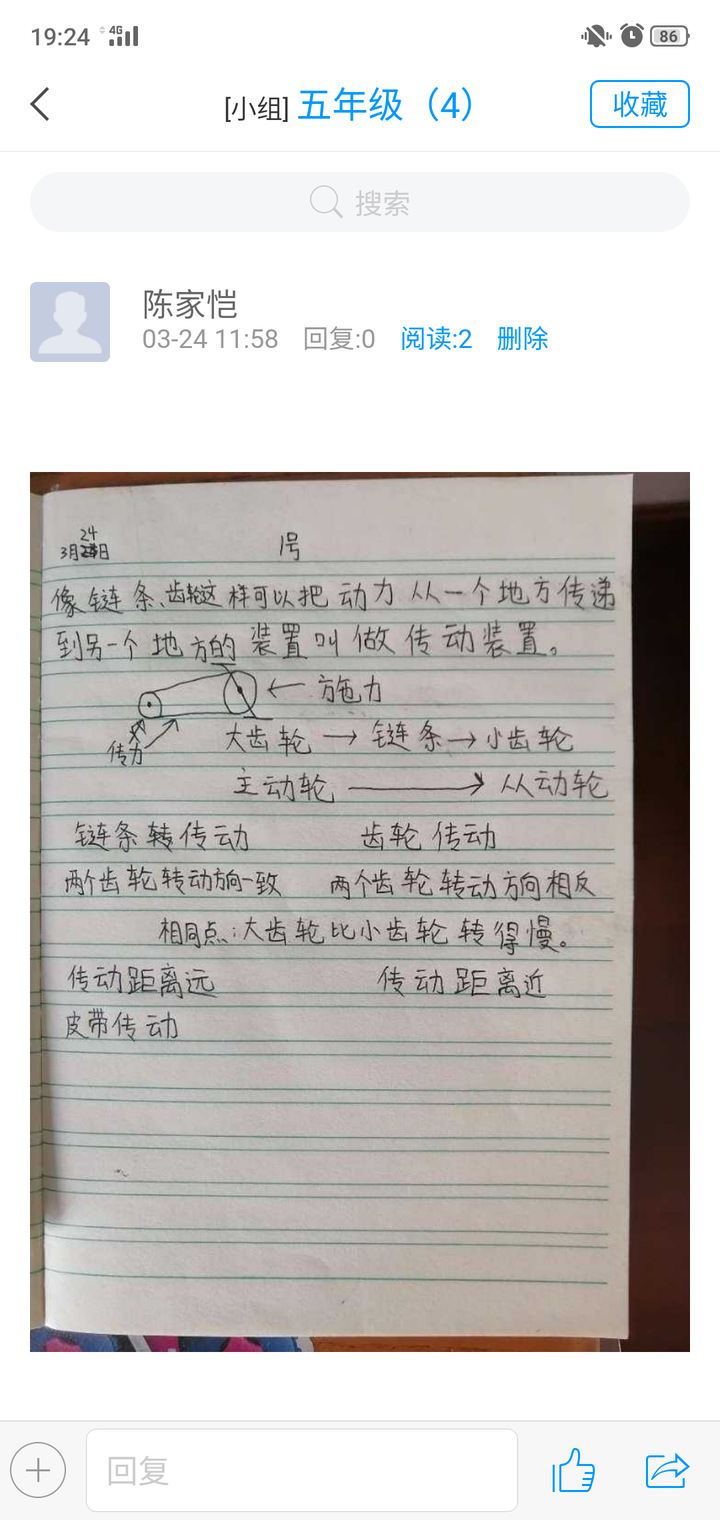 19:24 4G 86
[小组] 五年级（4） 收藏
搜索
陈家恺
03-24 11:58 回复:0 阅读:2 删除
24
3月日 1号
像链条、齿轮这样可以把动力从一个地方传递
到另一个地方的装置叫做传动装置。
施力
传力 大齿轮 → 链条 → 小齿轮
主动轮 → 从动轮
链条转传动 齿轮传动
两个齿轮转动方向一致 两个齿轮转动方向相反
相同点:大齿轮比小齿轮转得慢。
传动距离远 传动距离近
皮带传动
回复